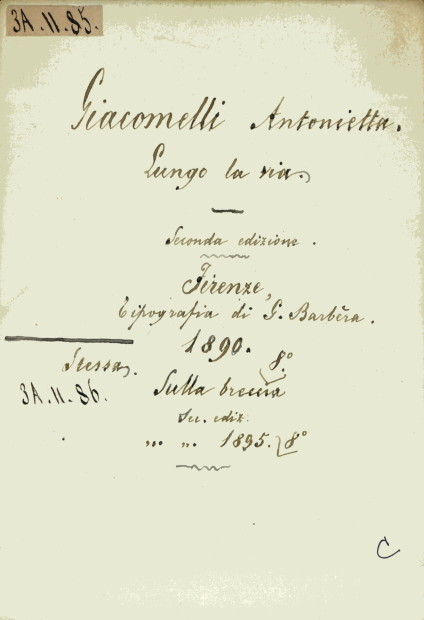 3A.II.85.
Giacomelli Antonietta.
Lungo la via.
Seconda edizione.
Firenze,
Tipografia di G. Barbèra.
1890. 8°
Stessa.
3A.II.86. Sulla breccia
Sec. ediz.
„ „ 1895. 8°
C